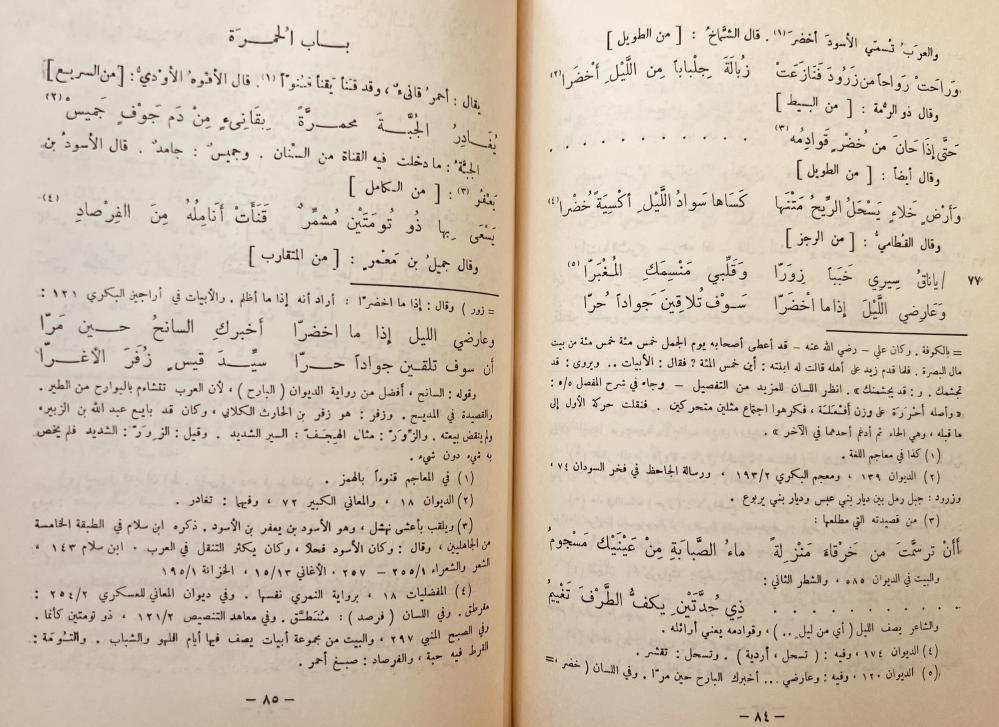 والعربُ تُسمّي الأسودَ أخضرَ (١) . قال الشمّاخُ : [ من الطويل ]
وَرَاحَتْ رَوَاحاً من زَرُودَ فَنَازَعَتْ زُبَالَةَ جِلْبَاباً مِنَ اللَّيْلِ أَخْضَرَا (٢)
وقال ذو الرمّة : [ من البسيط ]
حَتَّى إذَا حَانَ من خُضْرٍ قَوَادِمُه (٣) . . . . . . . . . .
وقال أيضاً : [ من الطويل ]
وَأَرْضٍ خَلَاءٍ يَسْحَلُ الرِّيحُ مَتْنَها كَسَاها سَوادُ اللَّيْلِ أكْسِيَةً خُضْرا (٤)
وقال القُطاميُّ : [ من الرجز ]
٧٧ / يا ناقُ سِيرِي خَبَباً زِوَرَّا وَقَلِّبي مَنْسِمَكِ المُغْبَرَّا (٥)
وَعَارِضِي اللَّيْلَ إذا ما اخْضَرَّا سَوْفَ تُلاقِينَ جَواداً حُرَّا
= بالكوفة . وكان علي – رضي الله عنه – قد أعطى أصحابه يوم الجمل خمس مئة خمس مئة من بيت
مال البصرة . فلما قدم زيد على أهله قالت له ابنته : أين خمس المئة ؟ فقال : الأبيات .. ويروى : قد
تجشمك . ر : قد يجشمنك » . انظر اللسان للمزيد من التفصيل – وجاء في شرح المفصل ٥/٥ :
« وأصله أحْرَرَة على وزن أفْعَلَة ، فكرهوا اجتماع مثلين متحركين . فنقلت حركة الأول إلى
ما قبله ، وهي الحاء ثم أدغم أحدهما في الآخر » .
(١) كذا في معاجم اللغة .
(٢) الديوان ١٣٩ ، ومعجم البكري ١٩٣/٢ ، ورسالة الجاحظ في فخر السودان ٧٤ ،
وزرود : جبل رمل بين ديار بني عبس وديار بني يربوع .
(٣) من قصيدته التي مطلعها :
أأنْ تَرسَّمْتَ من خَرْقاءَ مَنْزِلةً ماءُ الصَّبابَةِ مِنْ عَيْنَيْكَ مَسْجومُ
والبيت في الديوان ٥٨٥ ، والشطر الثاني :
. . . . . . . . . . ذِي جُدَّتَيْنِ يكفُّ الطَّرْفَ تَغْيِيمُ
والشاعر يصف الليل ( أي من ليل .. ) ، وقوادمه يعني أوائله .
(٤) الديوان ١٧٤ ، وفيه : ( تسحل ، أردية ) . وتسحل : تقشر .
(٥) الديوان ١٢٠ ، وفيه : وعارضي ... أخبرك البارح حين مرّا . وفي اللسان ( خضر ، =
– ٨٤ –
بــاب الحمــرة
يقال : أحمرُ قانىءٌ ، وقد قَنَأَ يَقنأُ قُنُوّاً (١) . قال الأفْوَهُ الأوْديُّ : [ من السريع ]
يُغَادِرُ الجُبَّةَ محمرَّةً بِقَانِىءٍ مِنْ دَمِ جَوفٍ جَمِيسْ (٢)
الجُبّةُ : ما دخلت فيه القناة من السِّنان . وجميسٌ : جامدٌ . قال الأسودُ بن
يَعْفُرَ (٣) : [ من الكامل ]
يَسْعَى بِها ذُو تُومَتَيْنِ مُشَمِّرٌ قَنَأَتْ أنَامِلُهُ مِنَ الفِرْصادِ (٤)
وقال جميلُ بن مَعْمرٍ : [ من المتقارب ]
= زور ) وقال : إذا ما اخضرّا : أراد أنه إذا ما أظلم . والأبيات في أراجيز البكري ١٢١ :
وعارضي الليل إذا ما اخضرّا أخبركِ السانحُ حـين مَرّا
أن سوف تلقين جواداً حـرّا سيِّـدَ قيسٍ زُفَرَ الأغَـرّا
وقوله : السانح ، أفضل من رواية الديوان ( البارح ) ، لأن العرب تتشاءم بالبوارح من الطير .
والقصيدة في المديح . وزفر : هو زفر بن الحارث الكلابي ، وكان قد بايع عبد الله بن الزبير ،
ولم ينقض بيعته . والزِّوَرّ : مثال الهِجَفّ : السير الشديد . وقيل : الزِّوَرّ : الشديد فلم يخص
به شيء دون شيء .
(١) في المعاجم قنوءاً بالهمز .
(٢) الديوان ١٨ ، والمعاني الكبير ٧٢ ، وفيها : تغادر .
(٣) ويلقب بأعشى نهشل ، وهو الأسود بن يعفر بن الأسود . ذكره ابن سلام في الطبقة الخامسة
من الجاهليين ، وقال : وكان الأسود فحلا ، وكان يكثر التنقل في العرب . ابن سلام ١٤٣ ،
الشعر والشعراء ٢٥٥/١ – ٢٥٧ . الأغاني ١٥/١٣ ، الخزانة ١٩٥/١
(٤) المفضليات ١٨ ، برواية النمري نفسها . وفي ديوان المعاني للعسكري ٢٥٤/٢ :
مقرطق . وفي اللسان ( فرصد ) : مُنَطَّق . وفي معاهد التنصيص ١٢١/٢ ، ذر تومتين كأنما .
وفي الصبح المنبي ٢٩٧ ، والبيت من مجموعة أبيات يصف فيها أيام اللهو والشباب . والتُّومَة :
القرط فيه حبة ، والفرصاد : صبغ أحمر .
– ٨٥ –